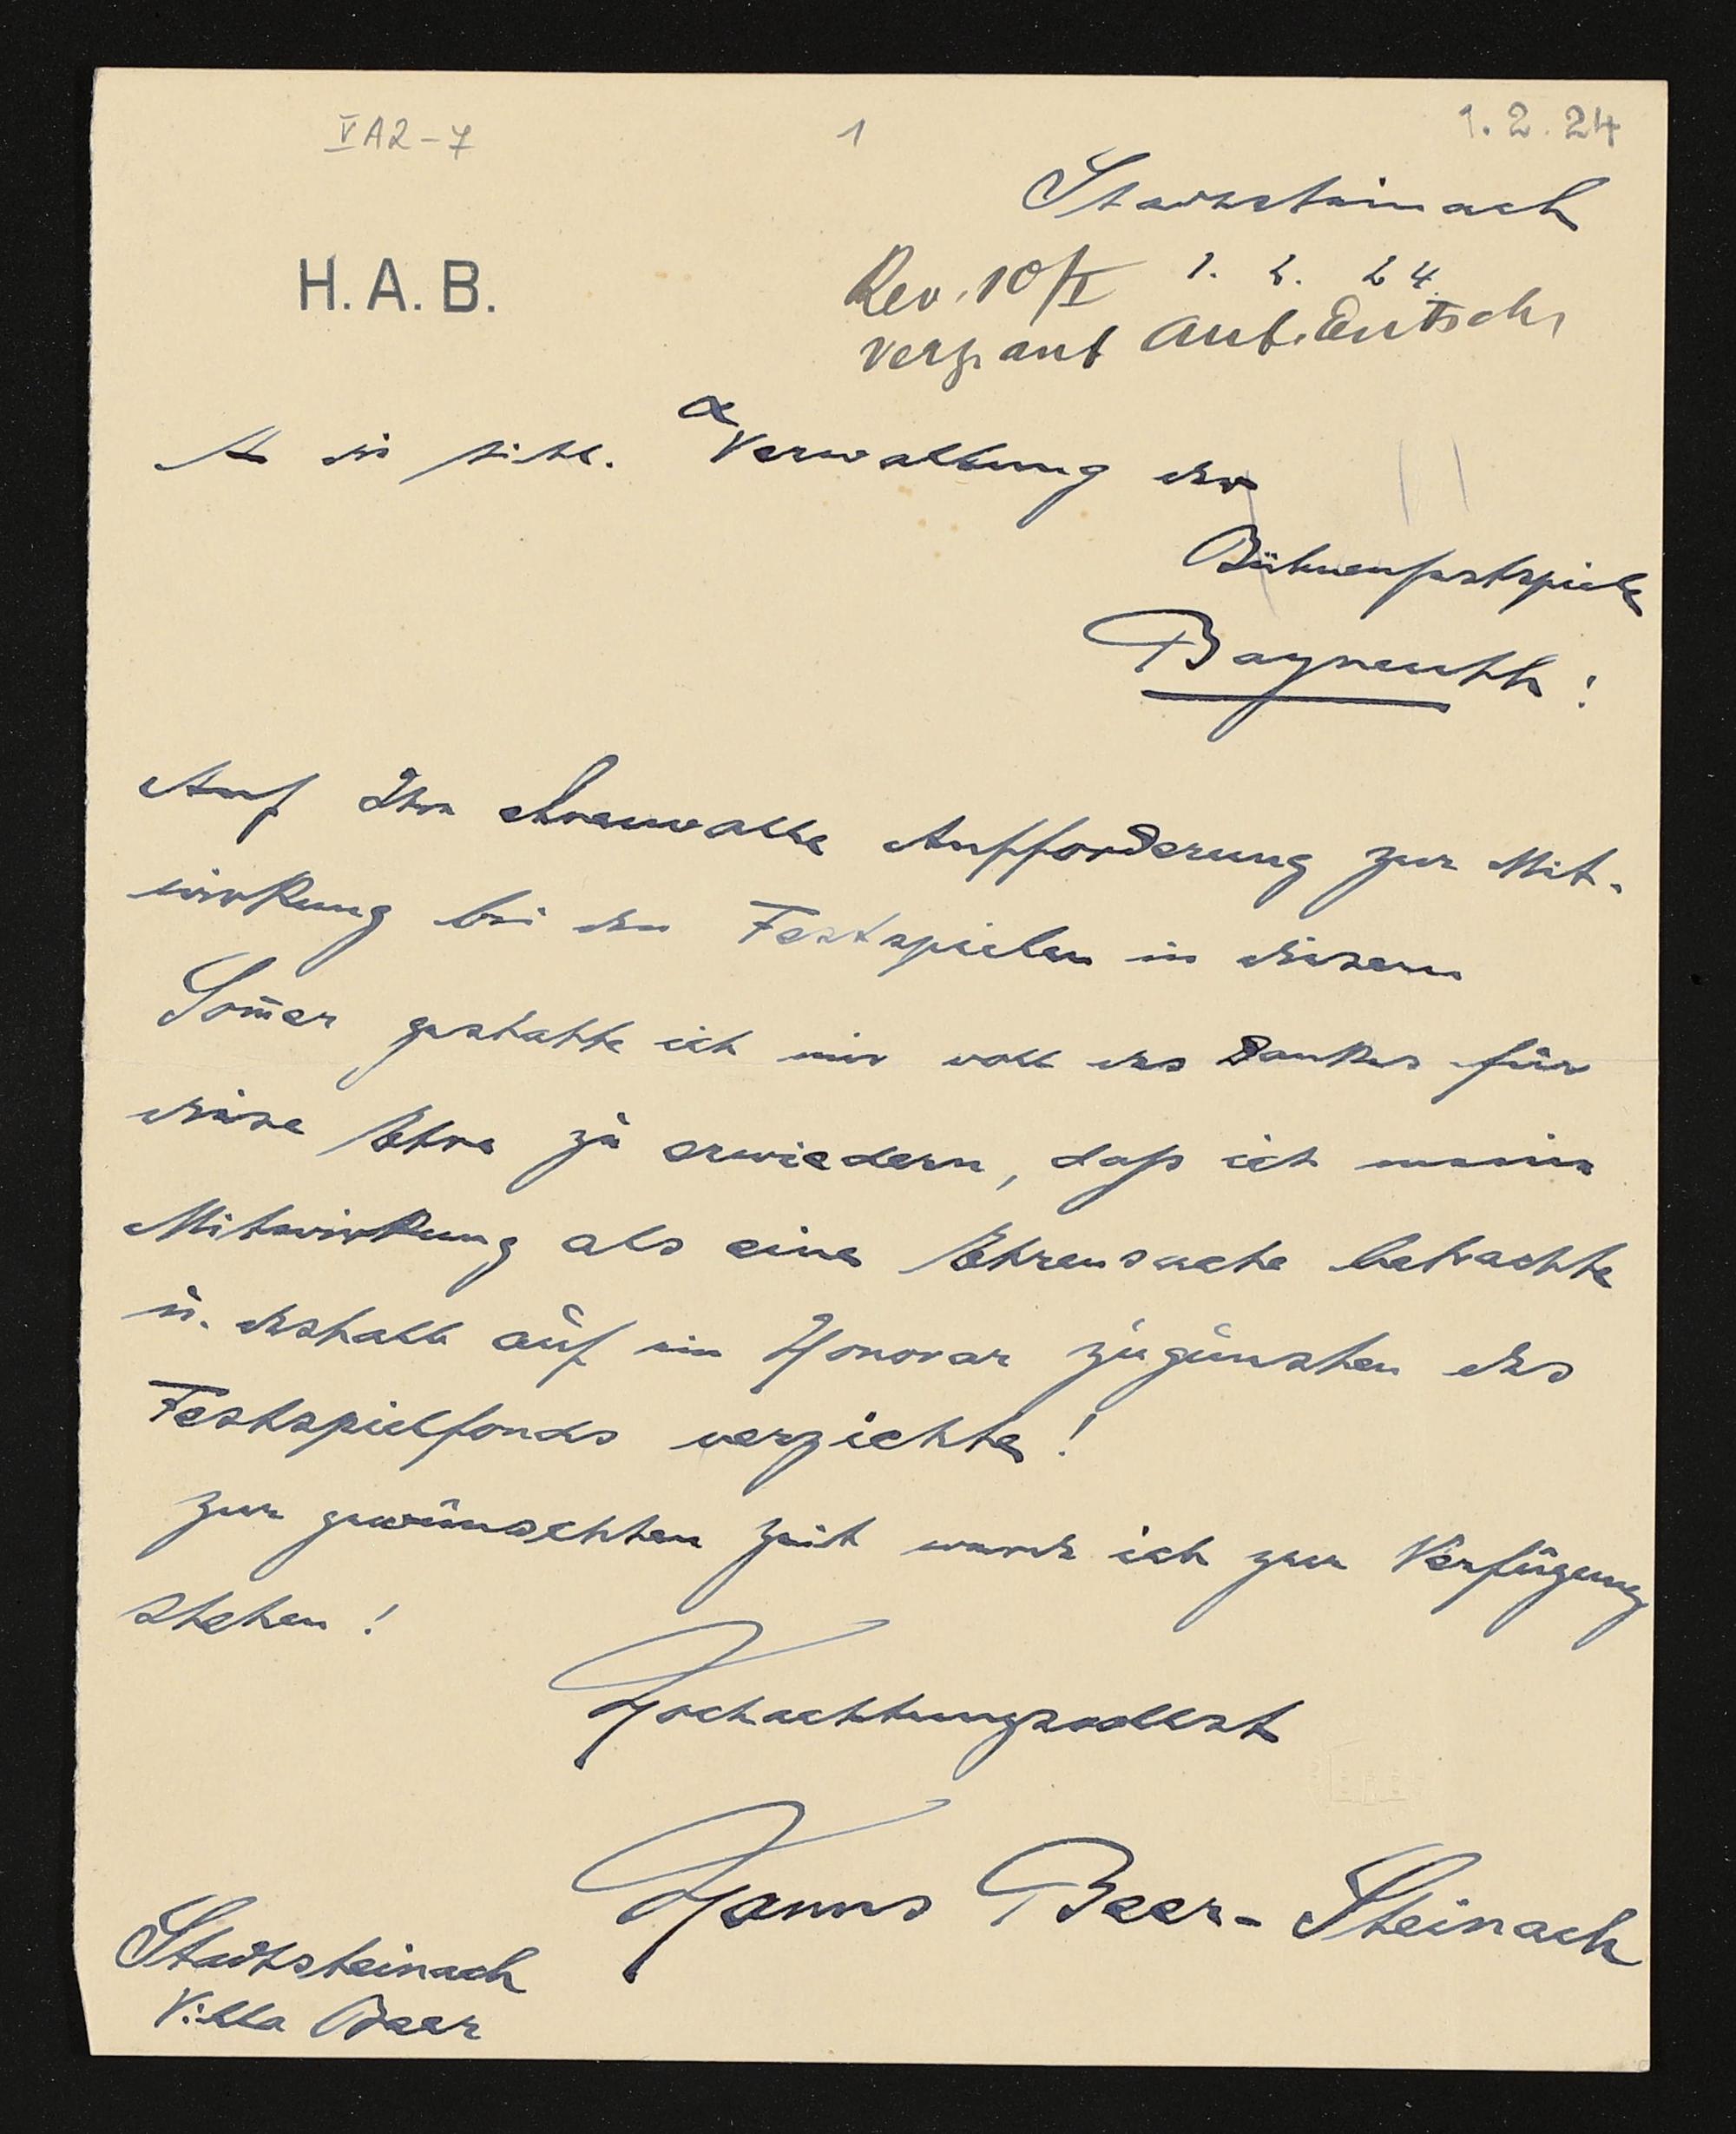 V A2-7 1 1.2.24
Stadtsteinach
H.A.B.
Rev. 10/I 1. 2. 24.
verz. ant
die titl. Verwaltung der
Bühnenfestspiele
Bayreuth!
Auf Ihre ehrenvolle Aufforderung zur Mit-
wirkung bei den Festspielen in diesem
Som̄er gestatte ich mir voll des Dankes für
diese Ehre zu erwiedern, daß ich meine
Mitwirkung als eine Ehrensache betrachte
u. deshalb auf ein Honorar zugunsten des
Festspielfonds verzichte!
Zur gewünschten Zeit werde ich zur Verfügung
stehen!
Hochachtungsvollst
Hanns Beer-Steinach
Stadtsteinach
Villa Beer